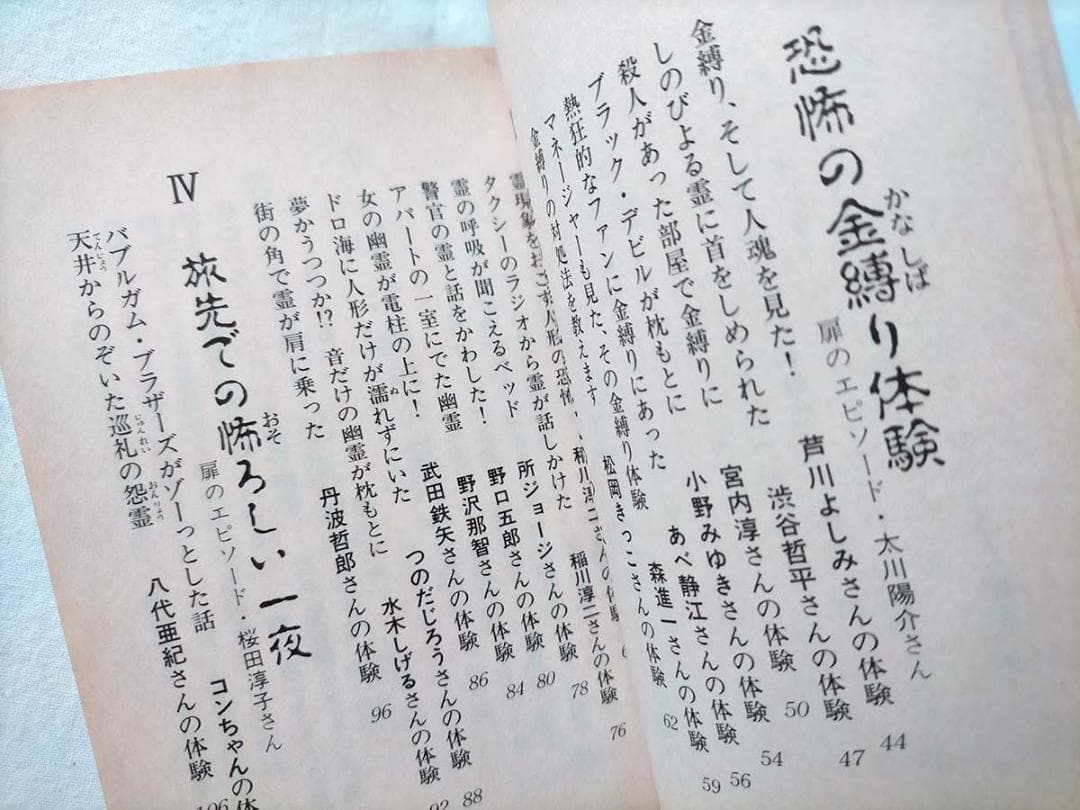 恐怖の金縛り体験
かなしば
扉のエピソード・太川陽介さん 44
金縛り、そして人魂を見た! 芦川よしみさんの体験 47
しのびよる霊に首をしめられた 渋谷哲平さんの体験 50
殺人があった部屋で金縛りに 宮内淳さんの体験 54
ブラック・デビルが枕もとに 小野みゆきさんの体験 56
熱狂的なファンに金縛りにあった あべ静江さんの体験 59
マネージャーも見た、その金縛り体験 森進一さんの体験 62
金縛りの対処法を教えます 松岡きっこさんの体験
霊現象をおこす人形の恐怖 稲川淳二さんの体験
タクシーのラジオから霊が話しかけた 稲川淳二さんの体験 76
霊の呼吸が聞こえるベッド 所ジョージさんの体験 78
警官の霊と話をかわした! 野口五郎さんの体験 80
アパートの一室にでた幽霊 野沢那智さんの体験 84
女の幽霊が電柱の上に! 武田鉄矢さんの体験 86
ドロ海に人形だけが濡れずにいた つのだじろうさんの体験 88
ぬ
夢かうつつか!? 音だけの幽霊が枕もとに 水木しげるさんの体験 92
街の角で霊が肩に乗った 丹波哲郎さんの体験 96
IV
旅先での怖ろしい一夜
おそ
扉のエピソード・桜田淳子さん
バブルガム・ブラザーズがゾーっとした話 コンちゃんの体
天井からのぞいた巡礼の怨霊 八代亜紀さんの体験 106
てんじょう じゅんれい おんりょう